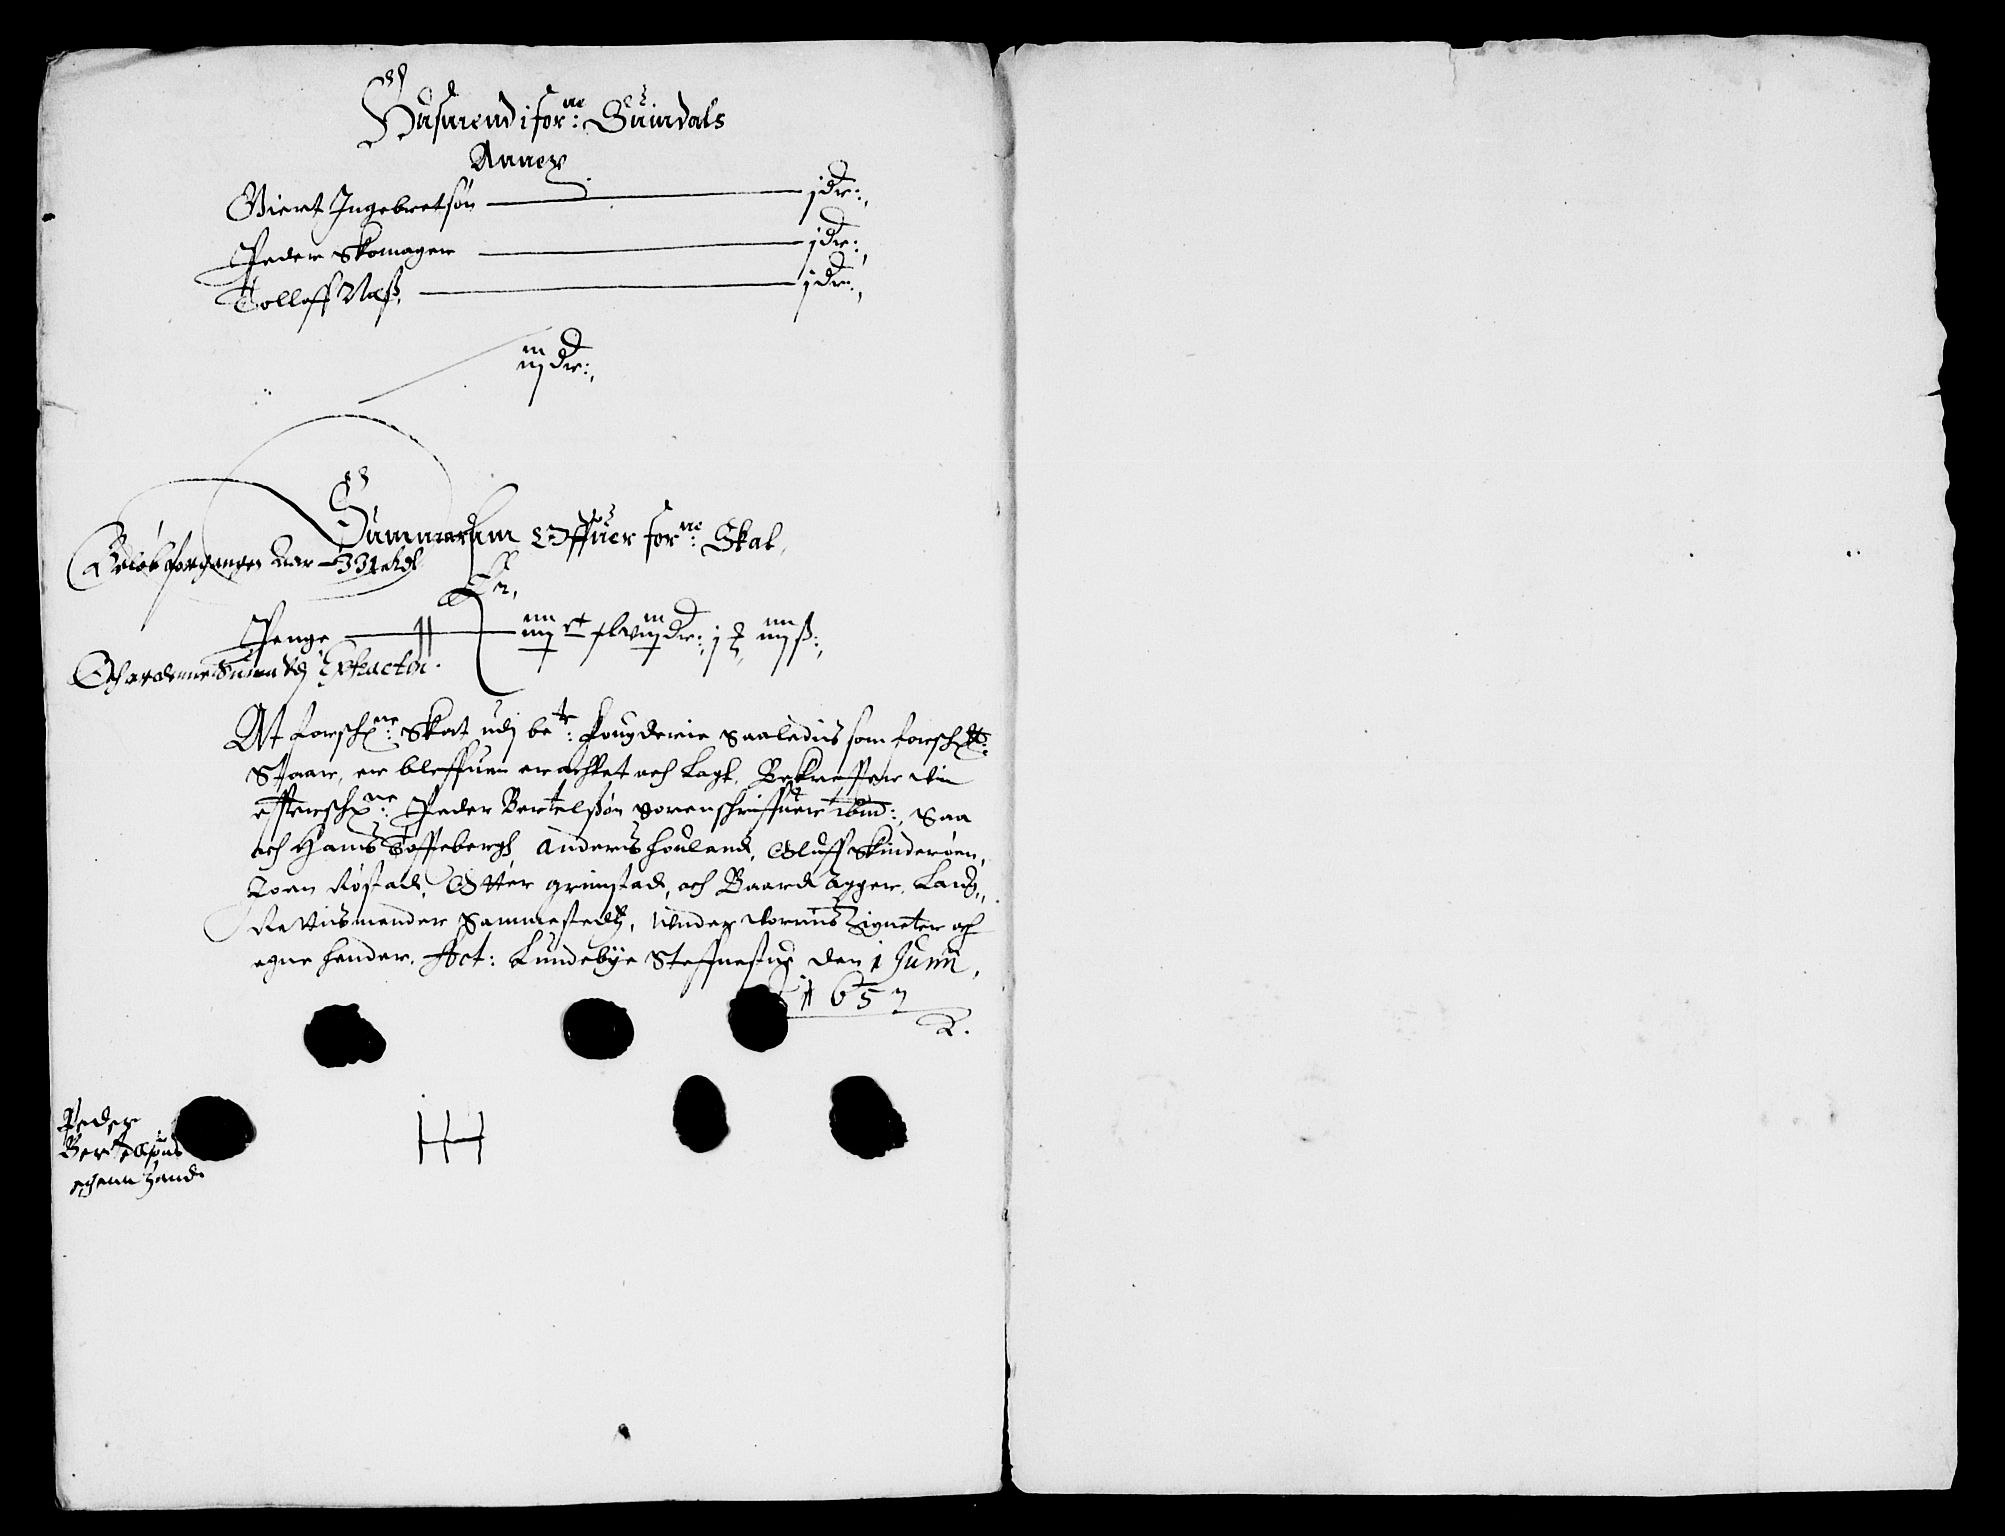 Husmend i for:ne Sundals
Annex
Giert Ingebretsøn — j dr:,
Peder Skomager — j dr:,
Tolleff Næss, — j dr:,
iij dr:,
Summarum Offuer for:ne Skat,
Beløb forgangen Aar — 331 rdr
Er,
Penge — iiij ct xlviij dr: j ₰ iiij ß:,
Och er denne Summa udj Extractin.
At forsch:ne Skat udj be:te Fougderie saaledis som forsch:t
Staar, er bleffuen erachtet och Lagt, Bekreffter wii
effterschr:ne Peder Bertelsøn Sorenschriffuer ibid:, Saa
och Hans Toffteberg, Anders Houland, Oluff Skinderøen,
Joen Røstad, Otter grimstad, och Baard Agger, Laug
Rettismender Sammesteds, Under Vorris Zigneter och
egne hender. Act: Lundebye Steffnestue den 1 Junii,
1657
Peder
Bertelsøns
egenn Hand
HH